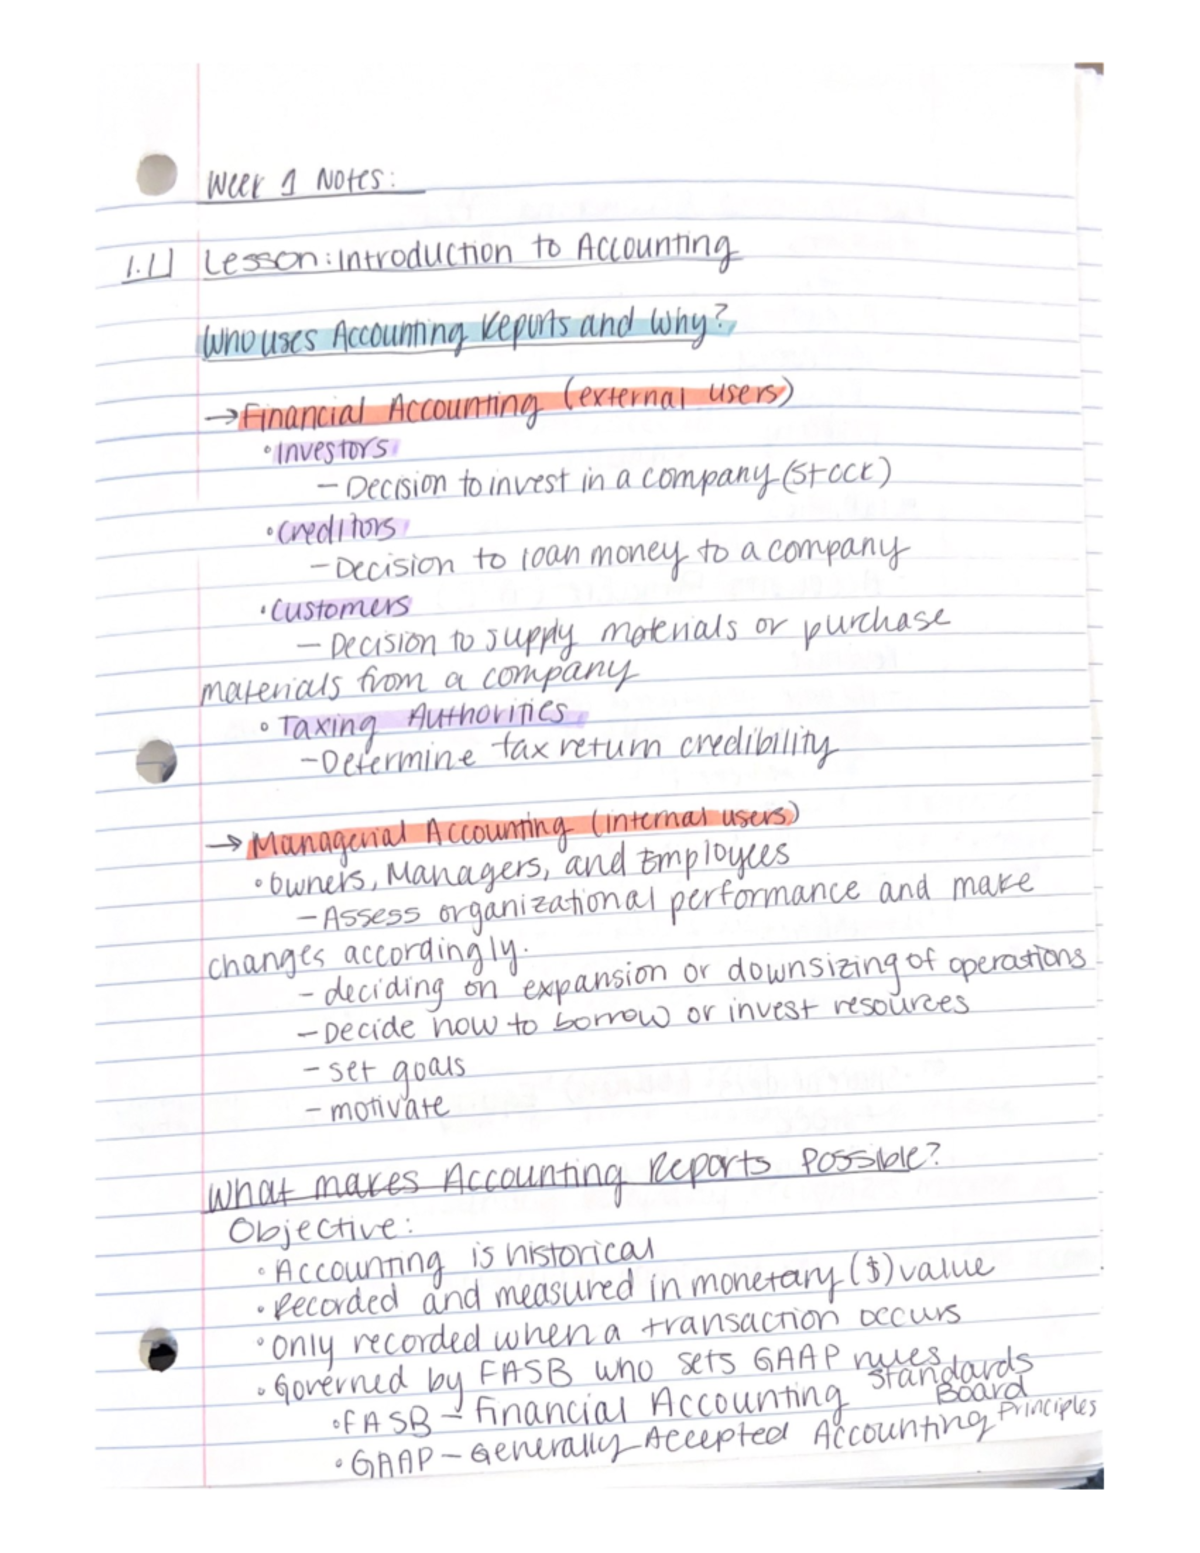 Week 1 Notes:
1.1 Lesson: Introduction to Accounting
Who uses Accounting Reports and Why?
→ Financial Accounting (external users)
• Investors
– Decision to invest in a company (Stock)
• Creditors
– Decision to loan money to a company
• Customers
– Decision to supply materials or purchase
materials from a company
• Taxing Authorities
– Determine tax return credibility
→ Managerial Accounting (internal users)
• Owners, Managers, and Employees
– Assess organizational performance and make
changes accordingly.
– deciding on expansion or downsizing of operations
– Decide how to borrow or invest resources
– set goals
– motivate
What makes Accounting Reports Possible?
Objective:
• Accounting is historical
• Recorded and measured in monetary ($) value
• Only recorded when a transaction occurs
• Governed by FASB who sets GAAP rules
• FASB – Financial Accounting Standards Board
• GAAP – Generally Accepted Accounting Principles